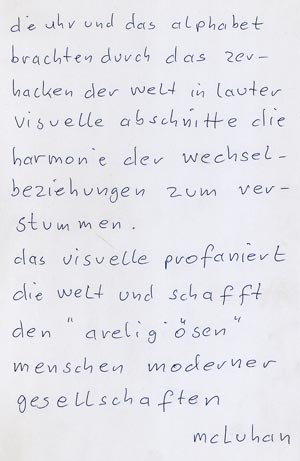 die uhr und das alphabet
brachten durch das zer-
hacken der welt in lauter
visuelle abschnitte die
harmonie der wechsel-
beziehungen zum ver-
stummen.
das visuelle profaniert
die welt und schafft
den "areligiösen"
menschen moderner
gesellschaften
mcLuhan